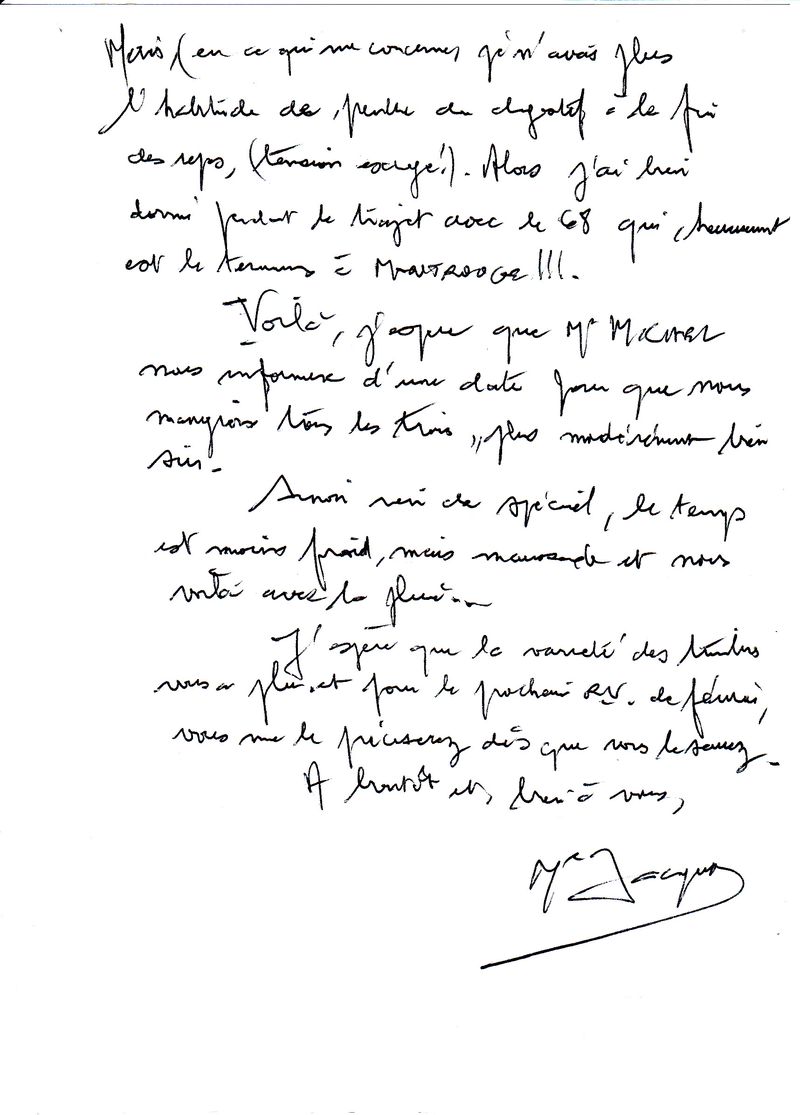 Mais (en ce qui me concerne, je n'avais plus
l'habitude de prendre du digestif à la fin
des repas, (tension exige!). Alors j'ai bien
dormi pendant le trajet avec le 68 qui, heureusement
est le terminus à MONTROUGE!!!.
Voilà, j'espère que Mr MICHEL
nous informera d'une date pour que nous
mangions tous les trois, plus modérément bien
sûr.
Sinon rien de spécial, le temps
est moins froid, mais maussade et nous
voilà avec la pluie...
J'espère que la variété des timbres
vous a plu, et pour le prochain R.V. de février,
vous me le préciserez dès que vous le saurez.
A bientôt et, bien à vous,
Mr Jacques